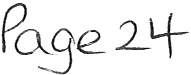 Page 24